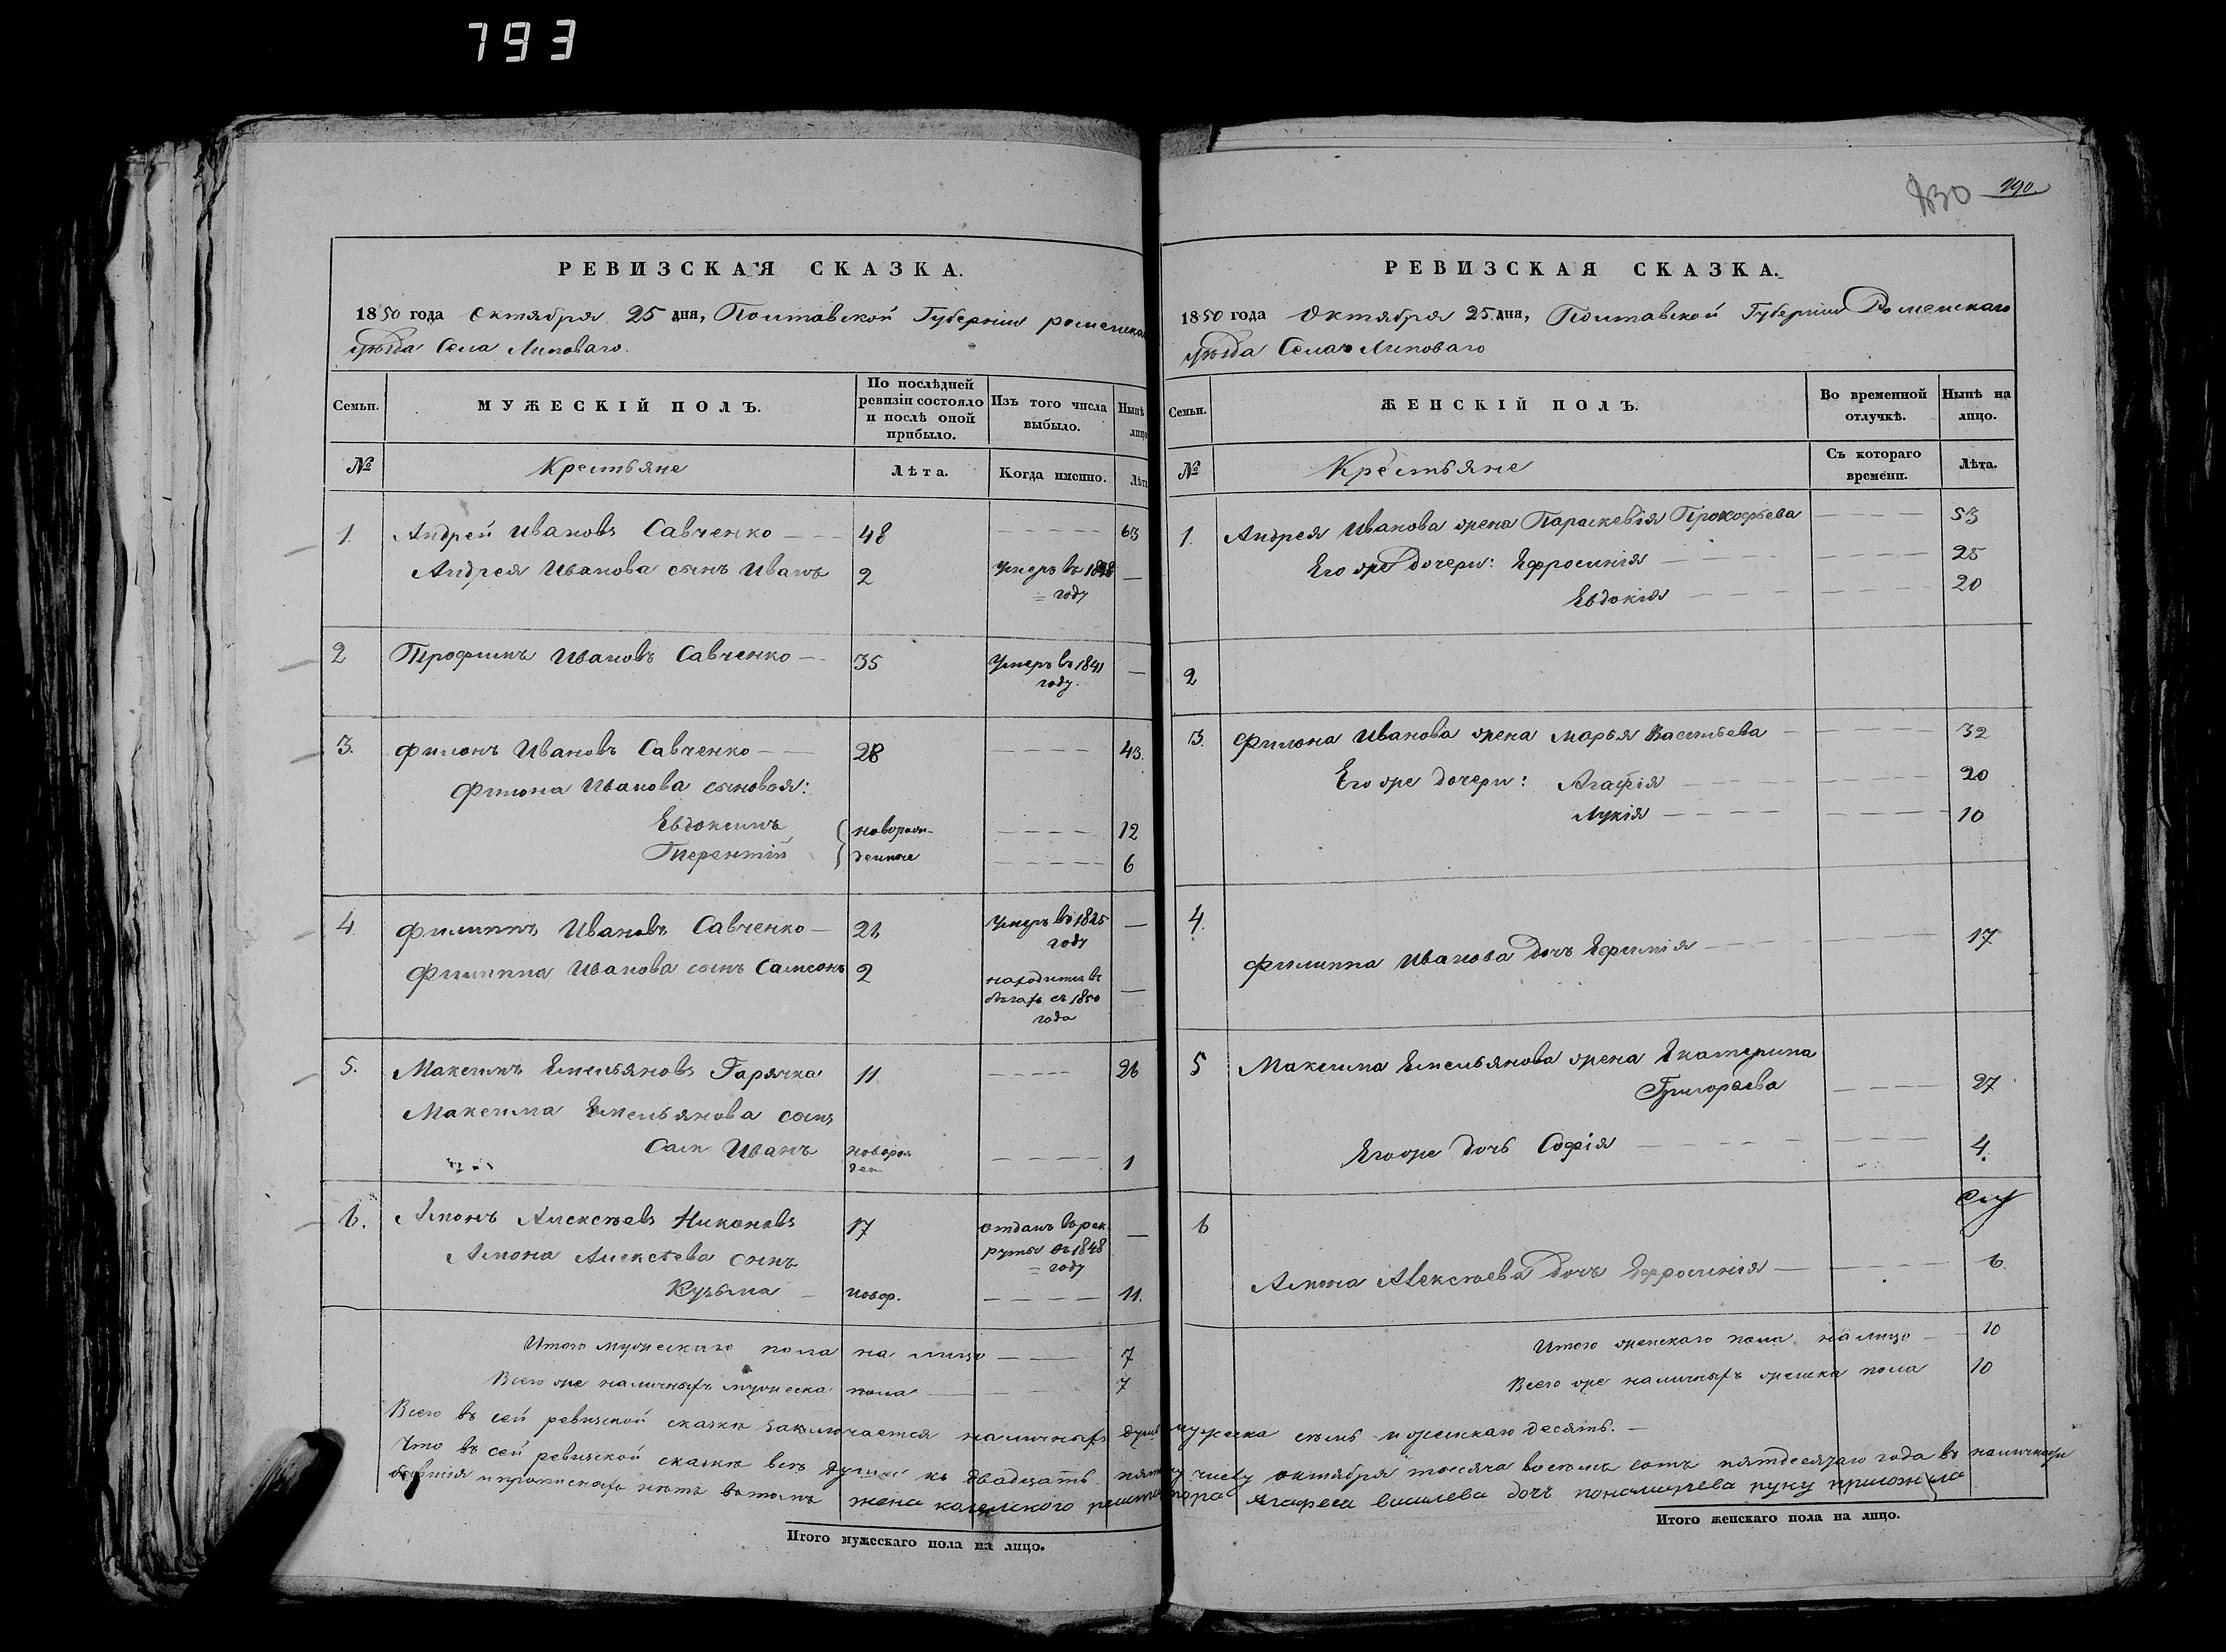 793
РЕВИЗСКАЯ СКАЗКА.
1850 года Октября 25 дня, Полтавской Губерніи роменска
уѣзда Села Липоваго.
Семьи.
МУЖЕСКІЙ ПОЛЪ.
По послѣдней ревизіи состояло и послѣ оной прибыло.
Изъ того числа выбыло.
Нынѣ лицо
№
Крестьяне
Лѣта.
Когда именно.
Лѣт
1. Андрей Ивановъ Савченко 48 63
Андрея Иванова сынъ Иванъ 2 Умеръ въ 1838
году
2 Трофимъ Ивановъ Савченко 35 Умеръ въ 1841
году.
3. Филонъ Ивановъ Савченко 28 43.
Филона Иванова сыновья:
Евдокимъ новорож- 12
Терентій денные 6
4. Филиппъ Ивановъ Савченко 21 Умеръ въ 1825
году
Филиппа Иванова сынъ Самсонъ 2 находится въ
бѣгахъ съ 1850
года
5. Максимъ Емельяновъ Гарячка 11 26
Максима Емельянова сынъ
Сам Иванъ новорож 1
ден
6. Агаѳонъ Алексѣевъ Никоновъ 17 отданъ въ рек
руты въ 1848
году
Алексѣева сынъ
Кузьма новор. 11.
Итого мужескаго пола на лицо 7
Всего же наличныхъ мужеска пола 7
830 790.
РЕВИЗСКАЯ СКАЗКА.
1850 года Октября 25 дня, Полтавской Губерніи Роменскаго
уѣзда Села Липоваго
Семьи.
ЖЕНСКІЙ ПОЛЪ.
Во временной отлучкѣ.
Нынѣ на лицо.
№
Крестьяне
Съ котораго времени.
Лѣта.
1. Андрея Иванова жена Параскевія Прокофьева 53
Его же дочери: Ефросинія 25
Евдокія 20
2
3. Филона Иванова жена Марья Васильева 32
Его же дочери: Агафія 20
Лукія 10
4.
Филиппа Иванова дочь Ефимія 17
5 Максима Емельянова жена Екатерина
Григорьева 27
Его же дочь София 4.
6
Алексѣева дочь Ефросинія 6
Итого женскаго пола на лицо 10
Всего же наличныхъ женска пола 10
Всего въ сей ревизской сказкѣ заключается наличныхъ душъ мужеска семь и женскаго десять.
Что въ сей ревизской сказкѣ всѣ души къ двадцать пятому числу октября тысяча восемь сотъ пятдесятаго года въ наличности
бывшія и прописныхъ нѣтъ въ томъ жена колежского регистратора Агафея Василева дочь пономарева руку приложила
Итого мужескаго пола на лицо.
Итого женскаго пола на лицо.